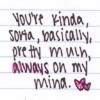 You're kinda,
sorta, basically,
pretty much,
always on my
mind.